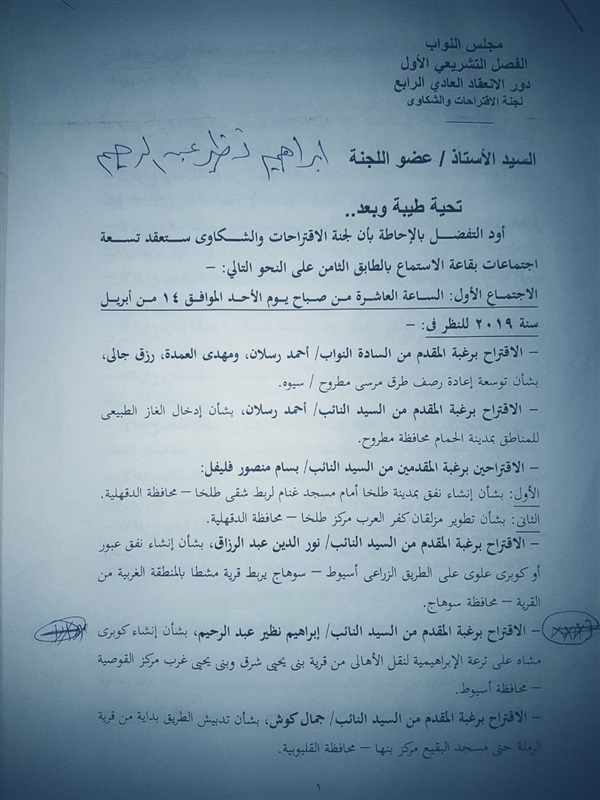 مجلس النواب
الفصل التشريعي الأول
دور الانعقاد العادي الرابع
لجنة الاقتراحات والشكاوى
السيد الأستاذ / عضو اللجنة ابراهيم نظير عبد الرحيم
تحية طيبة وبعد..
أود التفضل بالإحاطة بأن لجنة الاقتراحات والشكاوى ستعقد تسعة
اجتماعات بقاعة الاستماع بالطابق الثامن على النحو التالي: –
الاجتماع الأول: الساعة العاشرة من صباح يوم الأحد الموافق ١٤ من أبريل
سنة ٢٠١٩ للنظر فى: –
– الاقتراح برغبة المقدم من السادة النواب/ أحمد رسلان، ومهدى العمدة، رزق جالى،
بشأن توسعة إعادة رصف طرق مرسى مطروح / سيوه.
– الاقتراح برغبة المقدم من السيد النائب/ أحمد رسلان، بشأن إدخال الغاز الطبيعى
للمناطق بمدينة الحمام محافظة مطروح.
– الاقتراحين برغبة المقدمين من السيد النائب/ بسام منصور فليفل:
الأول: بشأن إنشاء نفق بمدينة طلخا أمام مسجد غنام لربط شقى طلخا – محافظة الدقهلية.
الثانى: بشأن تطوير مزلقان كفر العرب مركز طلخا – محافظة الدقهلية.
– الاقتراح برغبة المقدم من السيد النائب/ نور الدين عبد الرزاق، بشأن إنشاء نفق عبور
أو كوبرى علوى على الطريق الزراعى أسيوط – سوهاج يربط قرية مشطا بالمنطقة الغربية من
القرية – محافظة سوهاج.
– الاقتراح برغبة المقدم من السيد النائب/ إبراهيم نظير عبد الرحيم، بشأن إنشاء كوبرى
مشاه على ترعة الإبراهيمية لنقل الأهالى من قرية بنى يحيى شرق وبنى يحيى غرب مركز القوصية
– محافظة أسيوط.
– الاقتراح برغبة المقدم من السيد النائب/ جمال كوش، بشأن تدبيش الطريق بداية من قرية
الرملة حتى مسجد البقيع مركز بنها – محافظة القليوبية.
١